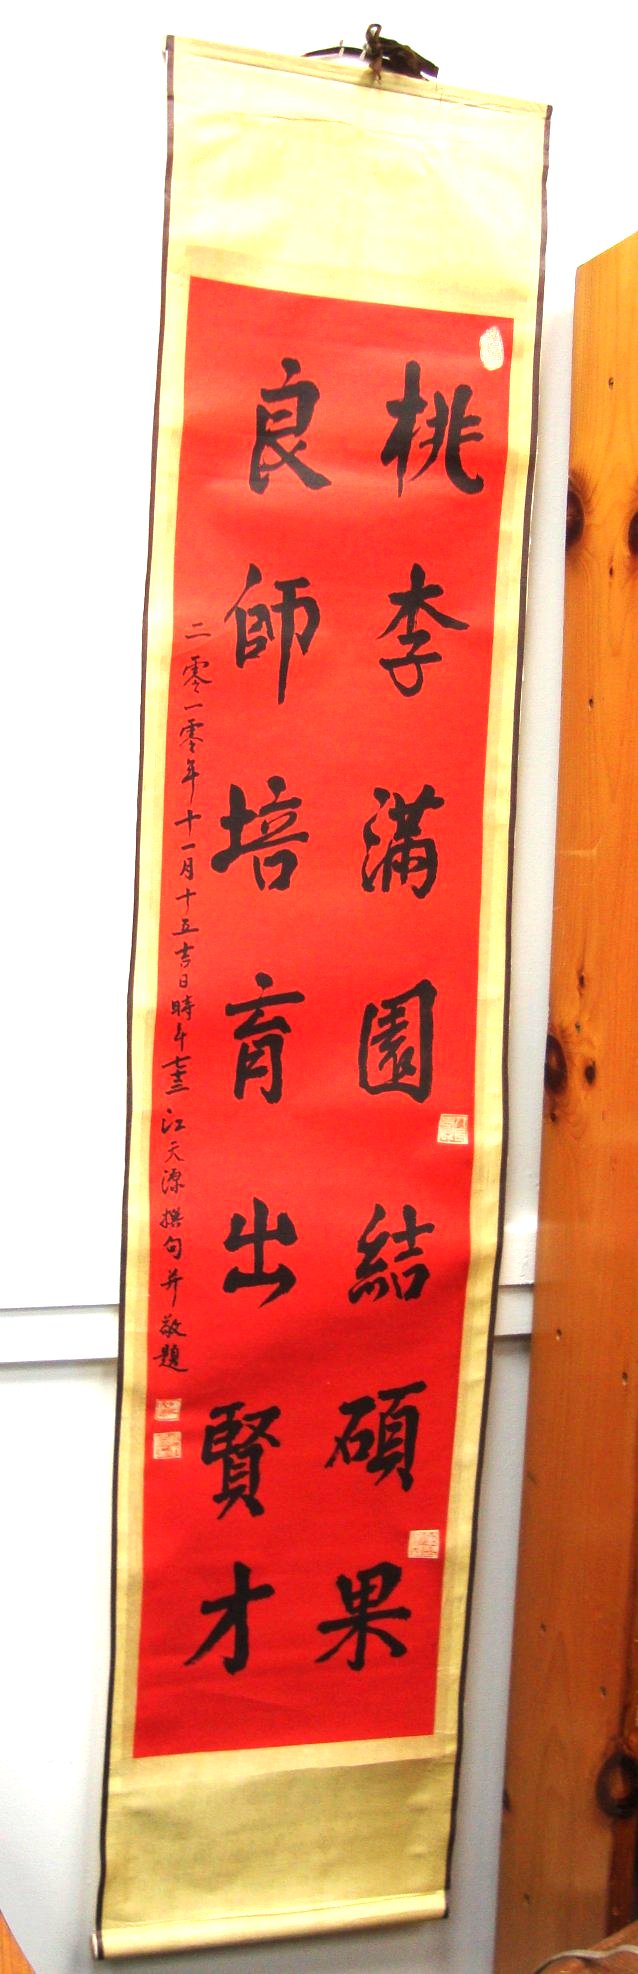 桃李滿園結碩果
良師培育出賢才
二零一零年十一月十五吉日時年七十三江天源撰句并敬題